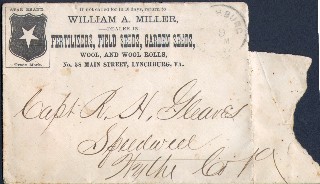 STAR BRAND.
If not called for in 10 days, return to
WILLIAM A. MILLER,
—DEALER IN—
FERTILIZERS, FIELD SEEDS, GARDEN SEEDS,
WOOL, AND WOOL ROLLS,
No. 58 MAIN STREET, LYNCHBURG, VA.
Trade Mark.
Capt. R. H. Gleaves
Speedwell
Wythe Co Va